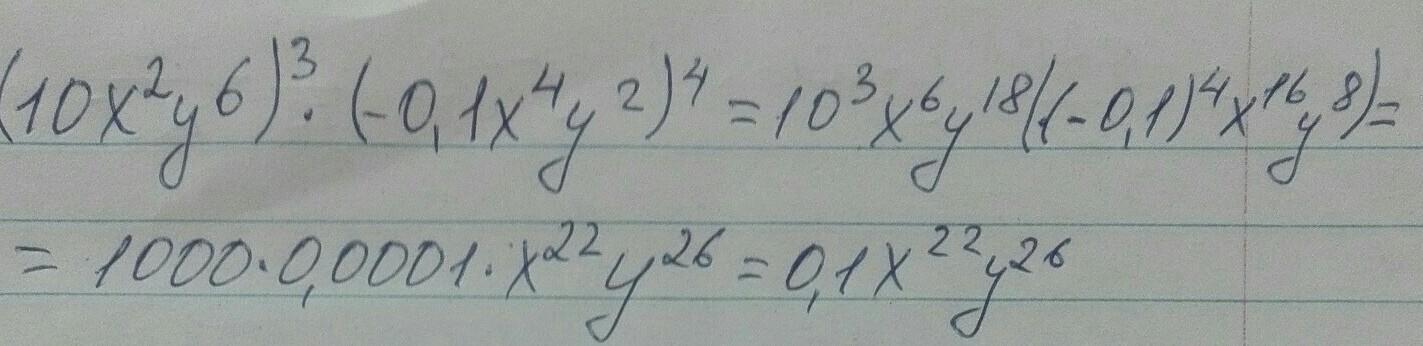 (10x²y⁶)³·(-0,1x⁴y²)⁴=10³x⁶y¹⁸((-0,1)⁴x¹⁶y⁸)=
=1000·0,0001·x²²y²⁶=0,1x²²y²⁶